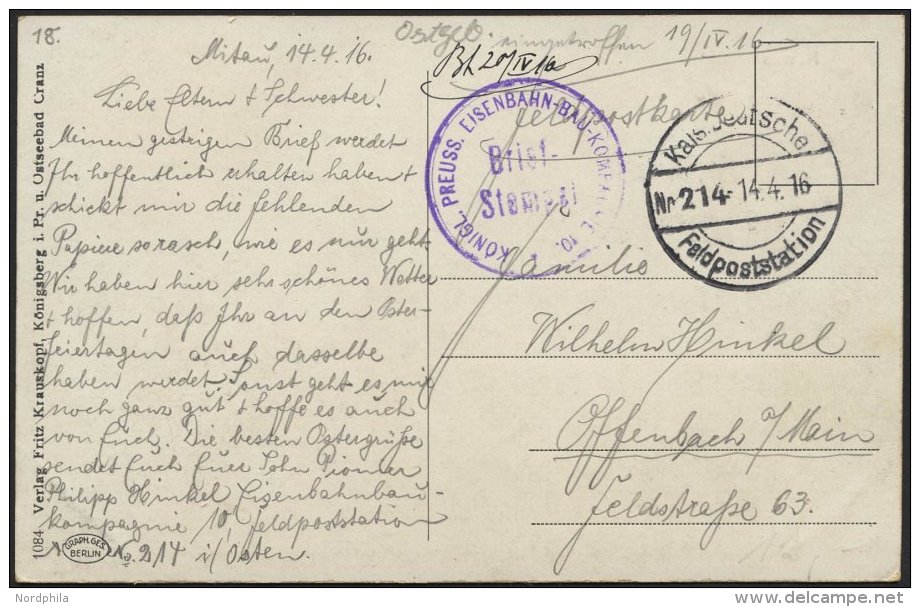 18.
Ostgeb. eingetroffen 19/IV.16
Bh 20/IV 16
Mitau, 14.4.16.
Liebe Eltern + Schwester!
Meinen gestrigen Brief werdet
Ihr hoffentlich erhalten haben +
schickt mir die fehlenden
Papiere so rasch, wie es nur geht.
Wir haben hier sehr schönes Wetter
+ hoffen, daß Ihr an den Oster-
feiertagen auch dasselbe
haben werdet. Sonst geht es mir
noch ganz gut + hoffe es auch
von Euch. Die besten Ostergrüße
sendet Euch Euer Sohn Pionier
Philipp Hinkel Eisenbahnbau-
kompagnie 10, Feldpoststation
No. 214 i/Osten.
Feldpostkarte
KÖNIGL. PREUSS. EISENBAHN-BAU-KOMPAGNIE 10.
Brief-
Stempel
Kais. Deutsche
Nr. 214 - 14.4.16
Feldpoststation
Familie
Wilhelm Hinkel
Offenbach a/Main
Feldstraße 63.
1084 Verlag Fritz Krauskopf, Königsberg i. Pr. u. Ostseebad Cranz
GRAPH. GES.
BERLIN
Nordphila
www.delcampe.net